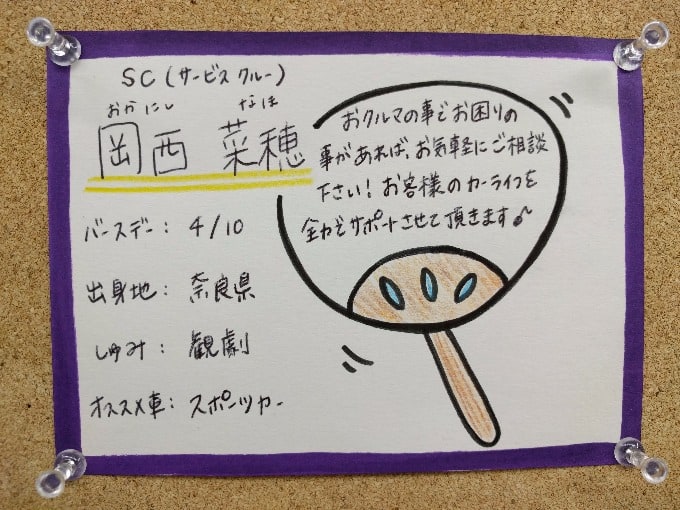 SC(サービスクルー)
おかにし なほ
岡西 菜穂
バースデー: 4/10
出身地: 奈良県
しゅみ: 観劇
オススメ車: スポーツカー
おクルマの事でお困りの
事があれば、お気軽にご相談
下さい!お客様のカーライフを
全力でサポートさせて頂きます♪